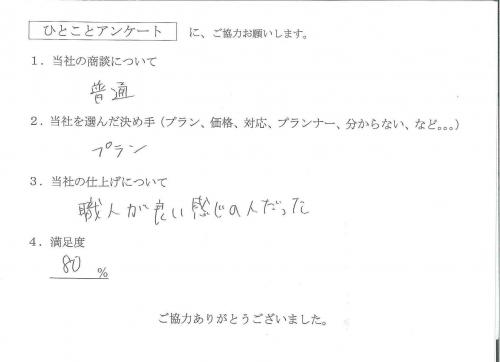 ひとことアンケート に、ご協力お願いします。
１．当社の商談について
普通
２．当社を選んだ決め手（プラン、価格、対応、プランナー、分からない、など。。。）
プラン
３．当社の仕上げについて
職人が良い感じの人だった
４．満足度
80 %
ご協力ありがとうございました。